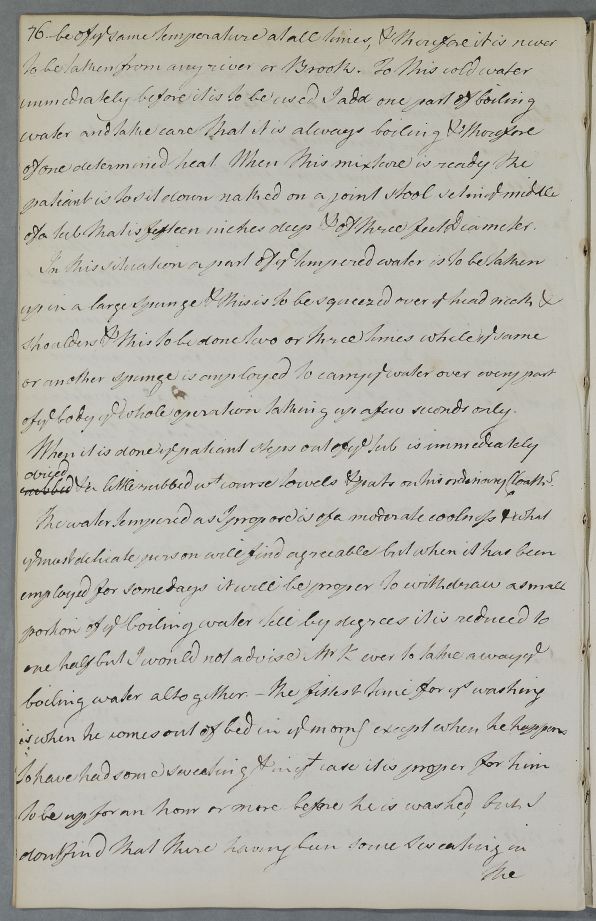 76 - be of ye same temperature at all times, & therefore it is never
to be taken from any river or Brook. To this cold water
immediately before it is to be used I add one part of boiling
water and take care that it is always boiling & therefore
of one determined heat When this mixture is ready the
patient is to sit down naked on a joint stool set in ye middle
of a tub that is fifteen inches deep & of three feet Diameter.
In this situation a part of ye tempered water is to be taken
up in a large spunge & this is to be squeezed over ye head neck &
shoulders & this to be done two or three times while ye same
or another spunge is employed to carry ye water over every part
of ye body ye whole operation taking up a few seconds only.
When it is done ye patient steps out of ye tub is immediately
dryed
rubbed & a little rubbed wt course towels & puts on his ordinary Cloaths.
The water tempered as I propose is of a moderate coolness & what
ye most delicate person will find agreeable but when it has been
employed for some days it will be proper to withdraw a small
portion of ye boiling water till by degrees it is reduced to
one half but I would not advise Mr K ever to take away ye
boiling water altogether. - The fittest time for ys washing
is when he comes out of bed in ye morng except when he happens
to have had some sweating & in yt case it is proper for him
to be up for an hour or more before he is washed, but I
dont find that there having been some sweating in
the